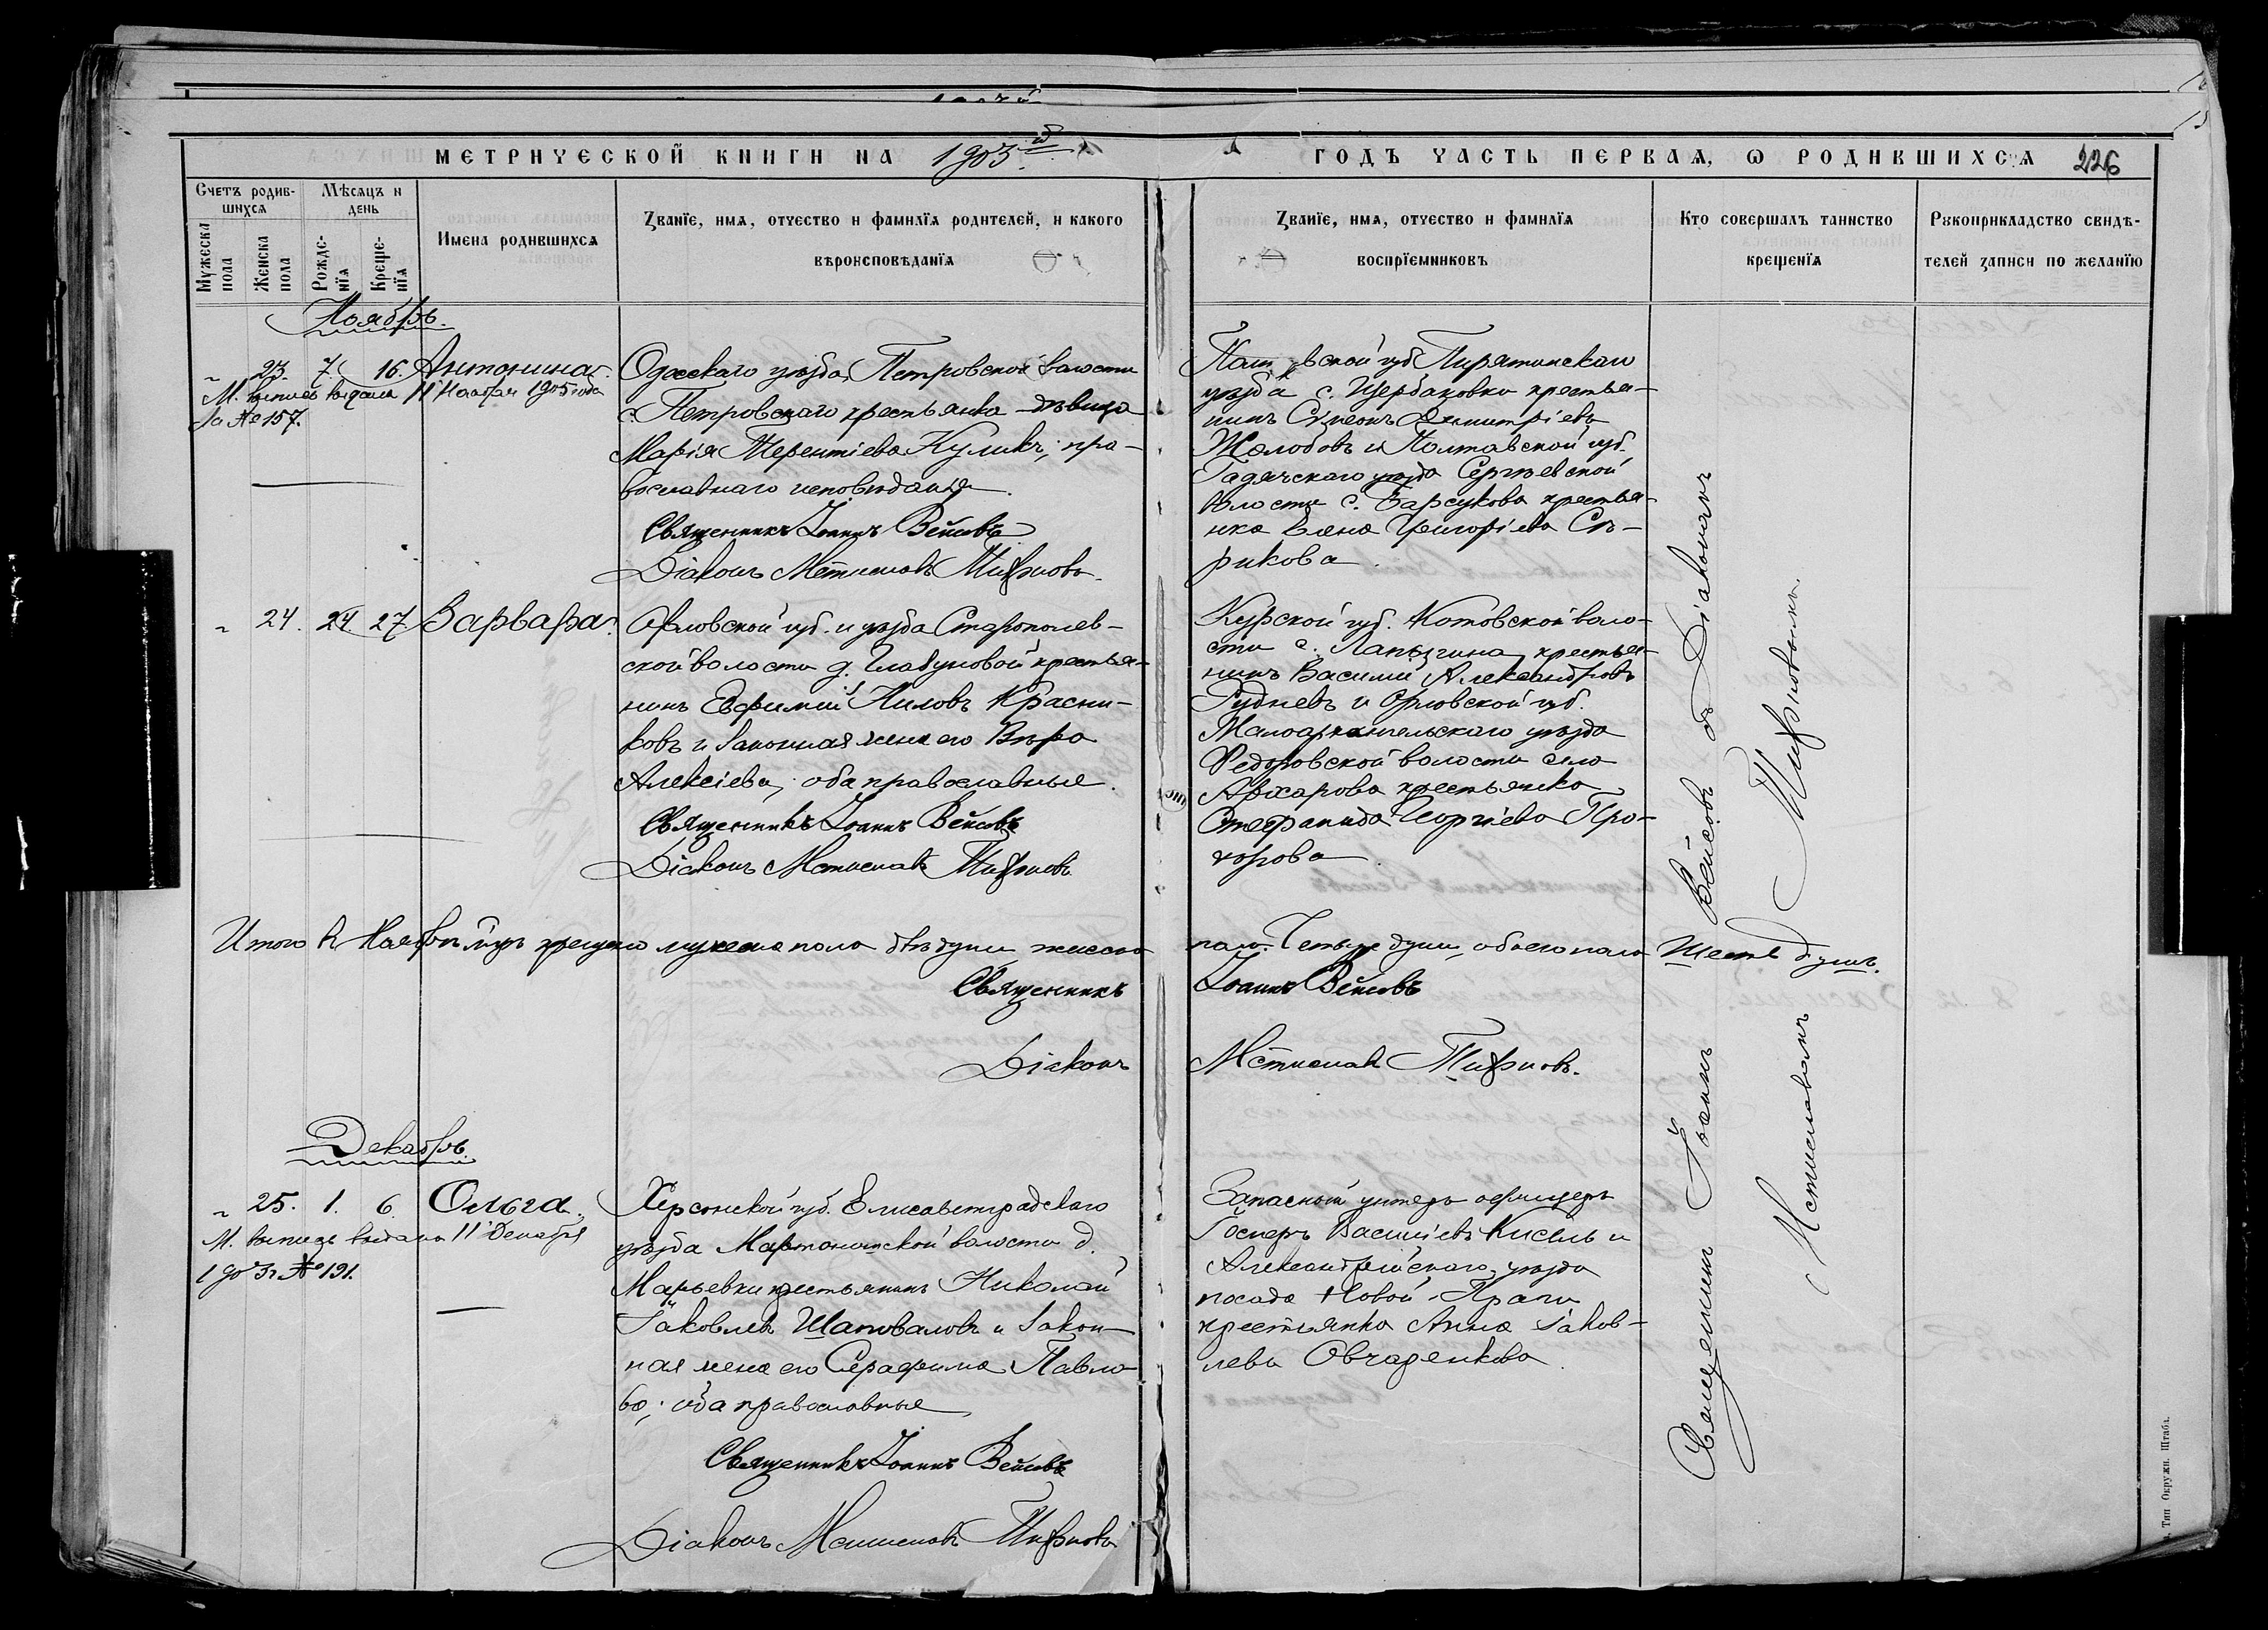 МЕТРИЧЕСКОЙ КНИГИ НА 1903й
ГОДЪ ЧАСТЬ ПЕРВАЯ, Ѡ РОДИВШИХСЯ 226
Счетъ родив-
шихся
Мѣсяцъ и
день
Мужеска
пола
Женска
пола
Рожде-
нїя
Креще-
нїя
Имена родившихся
Званїе, имя, отчество и фамилїя родителей, и какого
вѣроисповѣданїя
Званїе, имя, отчество и фамилїя
воспрїемниковъ
Кто совершалъ таинство
крещенїя
Рукоприкладство свидѣ-
телей записи по желанїю
Ноябрь.
23. 7. 16. Антонина.
М. выпись выдана 11 Ноября 1905 года
За № 157.
Одесскаго уѣзда, Петровской волости
с. Петровскаго крестьянка дѣвица
Марія Терентіева Куликъ; пра-
вославнаго исповѣданія.
Священникъ Іоаннъ Вейсовъ
Діаконъ Мстиславъ
Полтавской губ. Пирятинскаго
уѣзда с. Щербаковки крестья-
нинъ Сѵмеонъ Димитріевъ
Жолобовъ и Полтавской губ.
Гадячскаго уѣзда Сергѣевской
волости с. Барсукова крестья-
нка Елена Григоріева Сѣ-
рикова.
24. 24 27 Варвара.
Орловской губ. и уѣзда Старополев-
ской волости д. Глазуновой крестья-
нинъ Евфимій Ниловъ Красни-
ковъ и законная жена его Вѣра
Алексіева; оба православные.
Священникъ Іоаннъ Вейсовъ
Діаконъ Мстиславъ
Курской губ. Котовской воло-
сти с. Лапыгина крестья-
нинъ Василій Александровъ
Рудневъ и Орловской губ.
Малоархангельскаго уѣзда
Ѳедоровской волости села
Архарова крестьянка
Стефанида Георгіева Про-
хорова.
Итого въ Ноябрѣ м-цѣ крещено мужеска пола двѣ души, женска
пола четыре души, обоего пола шесть душъ.
Священникъ Іоаннъ Вейсовъ
Діаконъ Мстиславъ
Декабрь.
25. 1. 6. Ольга.
М. выпись выдана 11 Декабря
1903 г. № 191.
Херсонской губ. Елисаветградскаго
уѣзда Мартоношской волости д.
Марьевки крестьянинъ Николай
Іаковлевъ Шаповаловъ и закон-
ная жена его Серафима Павло-
ва; оба православные
Священникъ Іоаннъ Вейсовъ
Діаконъ Мстиславъ
Запасный унтеръ офицеръ
Василіевъ Кисель и
Александрійскаго уѣзда
посада Новой-Праги
крестьянка Анна Іаков-
лева Овчаренкова.
Священникъ Іоаннъ Вейсовъ съ Діакономъ
Мстиславомъ
Тип. Окружн. Штаба.